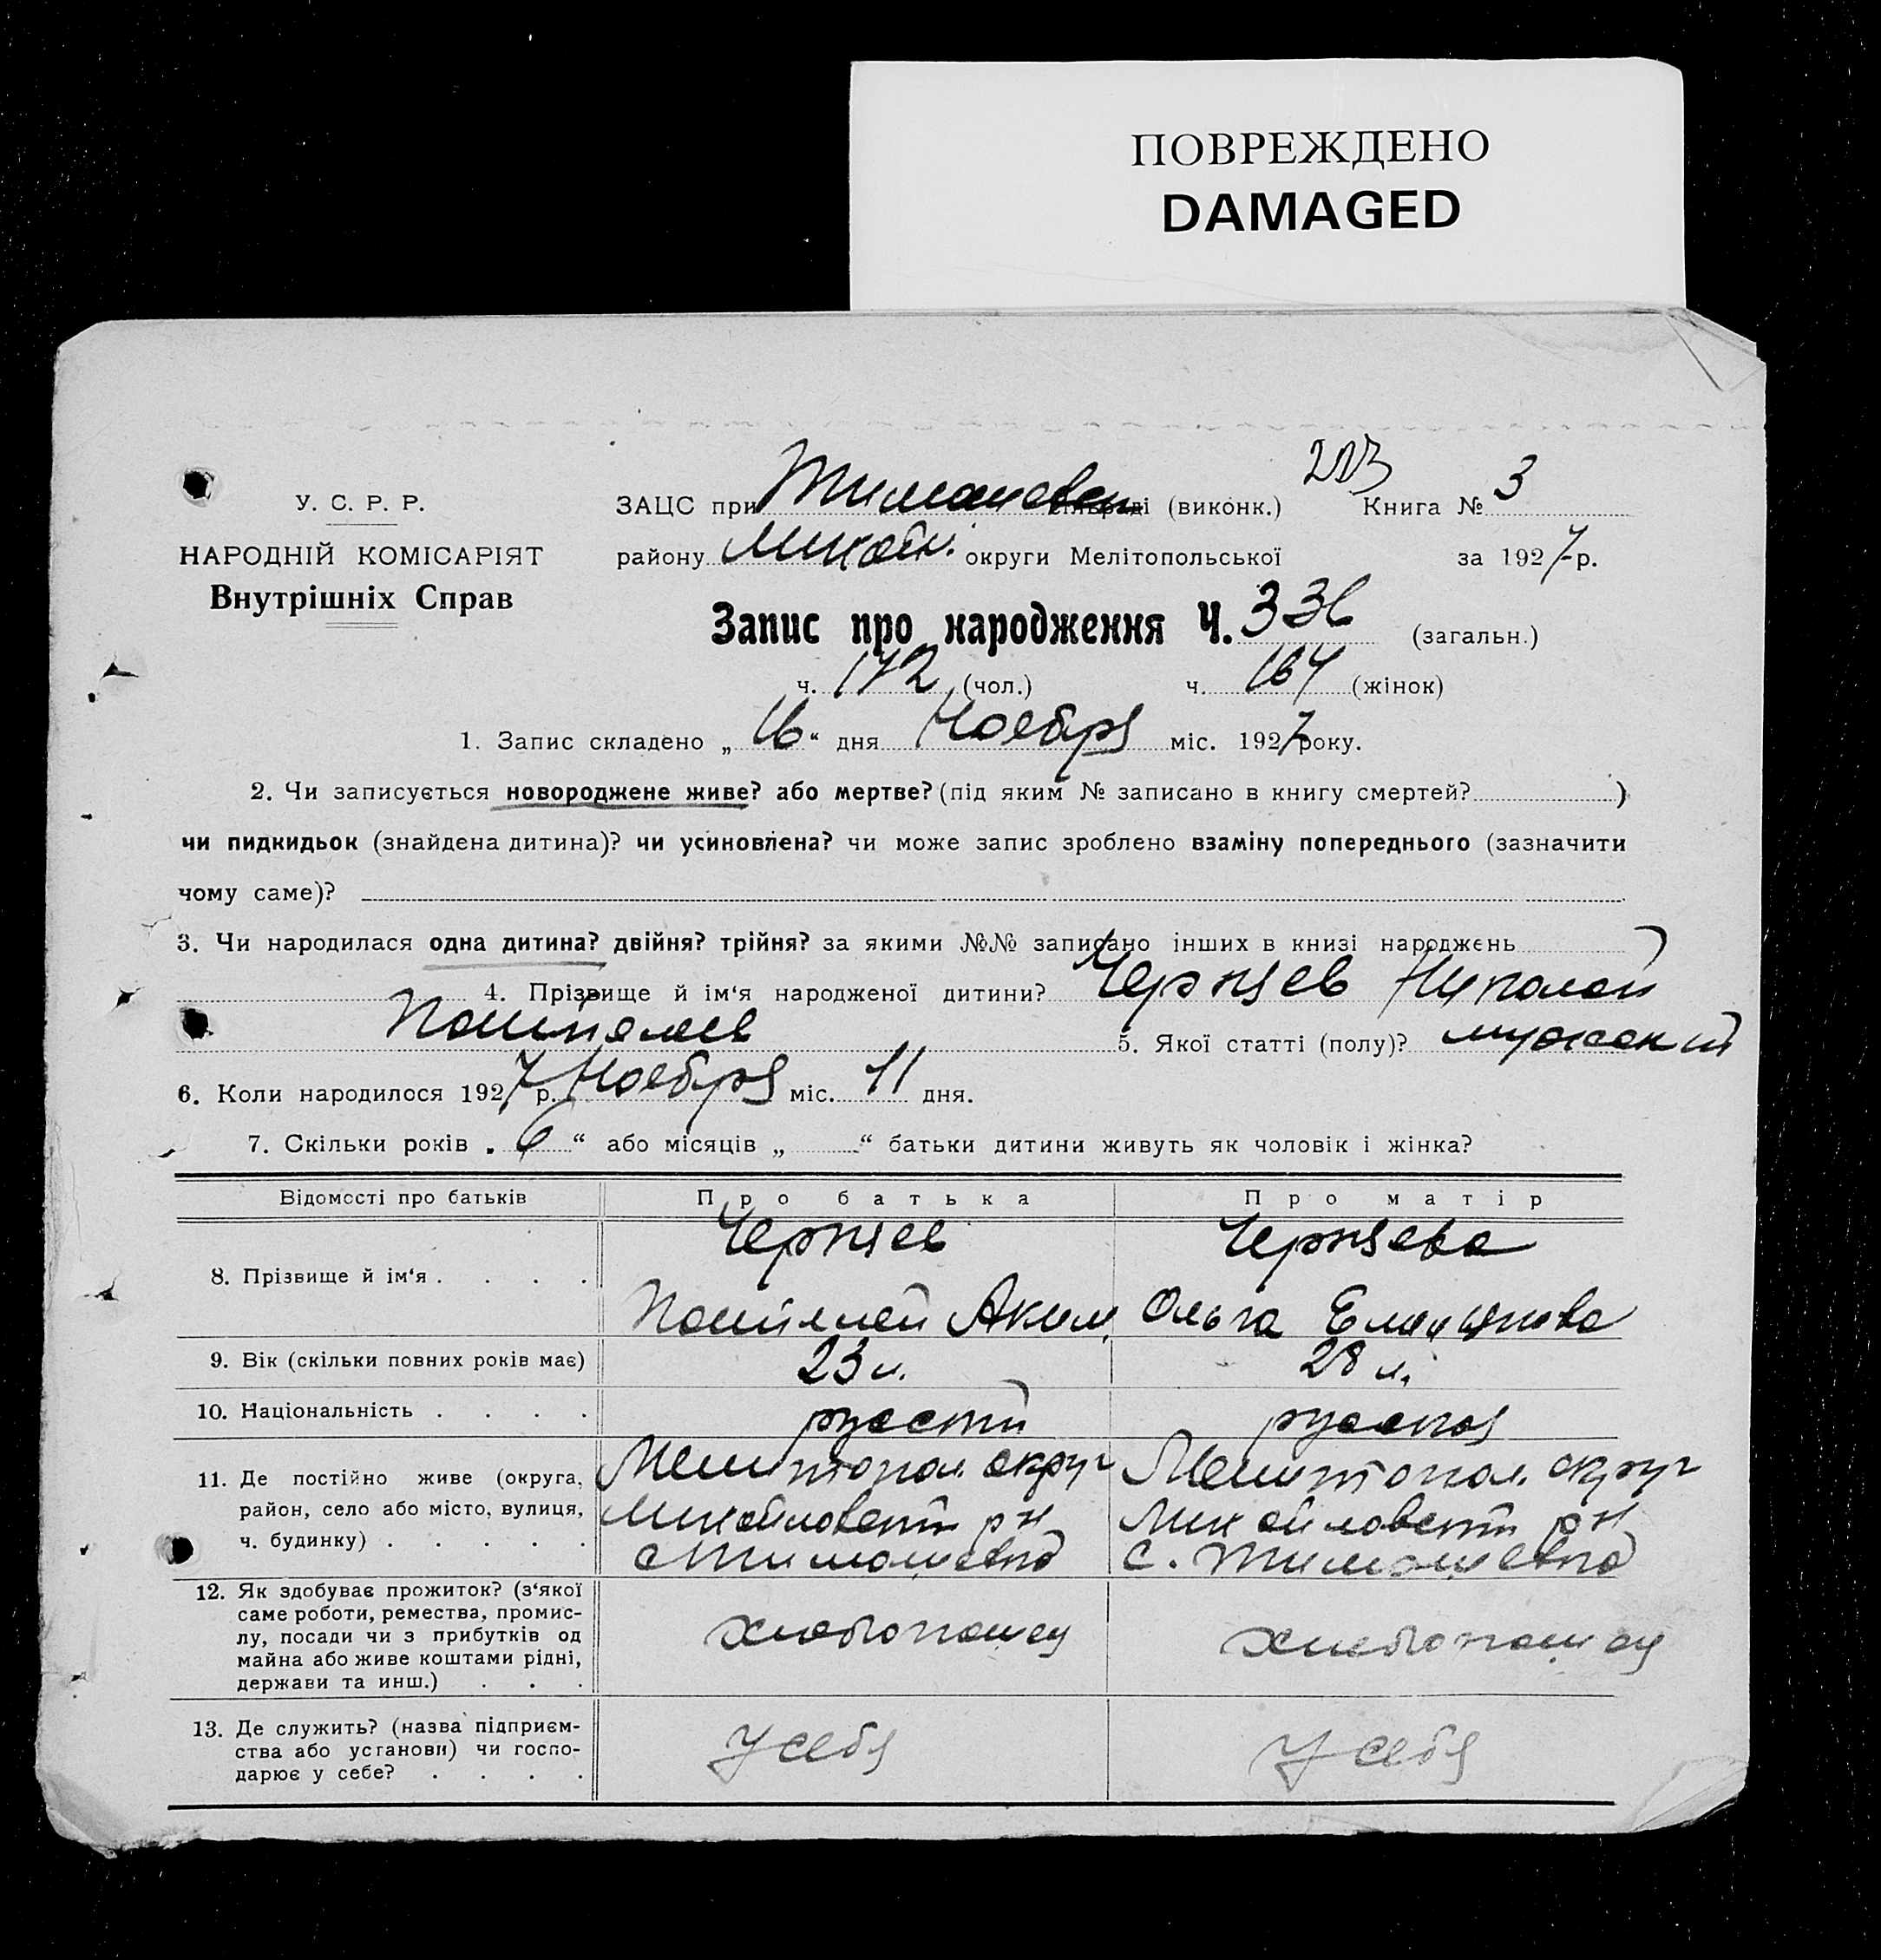 ПОВРЕЖДЕНО
DAMAGED
203
У. С. Р. Р.
ЗАЦС при Тимошевск сільраді (виконк.) Книга № 3
НАРОДНІЙ КОМІСАРІЯТ
Внутрішніх Справ
району Михайл. округи Мелітопольської за 1927 р.
Запис про народження Ч. 336 (загальн.)
ч. 172 (чол.) ч. 164 (жінок)
1. Запис складено „16“ дня Ноебря міс. 1927 року.
2. Чи записується новороджене живе? або мертве? (під яким № записано в книгу смертей? )
чи пидкидьок (знайдена дитина)? чи усиновлена? чи може запис зроблено взаміну попереднього (зазначити
чому саме)?
3. Чи народилася одна дитина? двійня? трійня? за якими №№ записано інших в книзі народжень
4. Прізвище й ім‘я народженої дитини? Черняев Николай
Пантелеев 5. Якої статті (полу)? мужский
6. Коли народилося 1927 р. Ноебря міс. 11 дня.
7. Скільки років „6“ або місяців „ “ батьки дитини живуть як чоловік і жінка?
Відомості про батьків Про батька Про матір
8. Прізвище й ім‘я . . . .
Черняев
Пантелей Аким.
Черняева
Ольга
9. Вік (скільки повних років має) 23 л. 28 л.
10. Національність . . . . русский русская
11. Де постійно живе (округа,
район, село або місто, вулиця,
ч. будинку) . . . . .
Мелитопол. округ
Михайловский рн
с Тимошевка
Мелитопол. округ
Михайловский рн
с. Тимошевка
12. Як здобуває прожиток? (з‘якої
саме роботи, ремества, промис-
лу, посади чи з прибутків од
майна або живе коштами рідні,
держави та инш.) . . .
хлебопашец
хлебопашец
13. Де служить? (назва підприєм-
ства або установи) чи госпо-
дарює у себе? . . . .
У себя
У себя